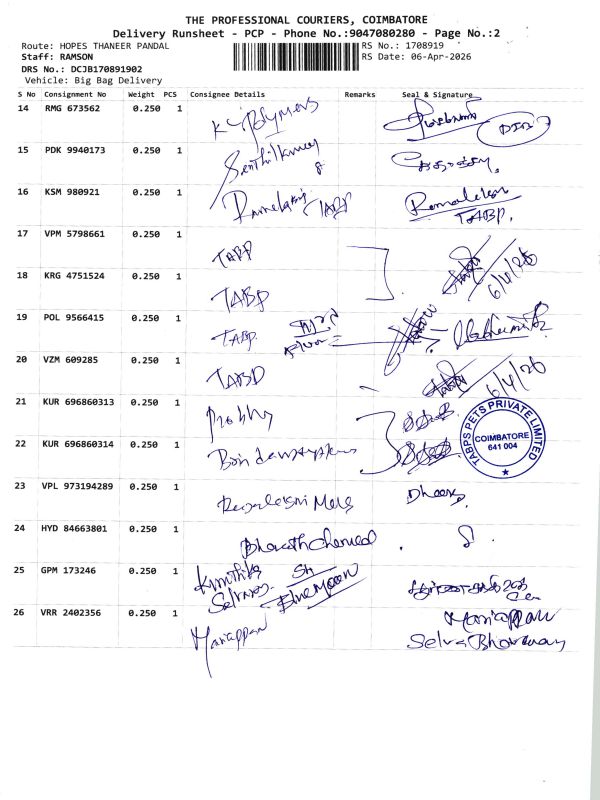 THE PROFESSIONAL COURIERS, COIMBATORE
Delivery Runsheet - PCP - Phone No.:9047080280 - Page No.:2
Route: HOPES THANEER PANDAL
RS No.: 1708919
Staff: RAMSON
RS Date: 06-Apr-2026
DRS No.: DCJB170891902
Vehicle: Big Bag Delivery
S No Consignment No Weight PCS Consignee Details Remarks Seal & Signature
14 RMG 673562 0.250 1 K Polymers
15 PDK 9940173 0.250 1 Senthilkumar
16 KSM 980921 0.250 1 TABP
TABP.
17 VPM 5798661 0.250 1 TABP
18 KRG 4751524 0.250 1 TABP 6/4/26
19 POL 9566415 0.250 1 TABP
20 VZM 609285 0.250 1 TABP 6/4/26
21 KUR 696860313 0.250 1 Prabhu
TABPS PETS PRIVATE LIMITED
COIMBATORE
641 004
22 KUR 696860314 0.250 1
23 VPL 973194289 0.250 1
24 HYD 84663801 0.250 1 Bharath Chemical
25 GPM 173246 0.250 1 Krithika
Blue Moon
26 VRR 2402356 0.250 1 Mariappan Mariappan